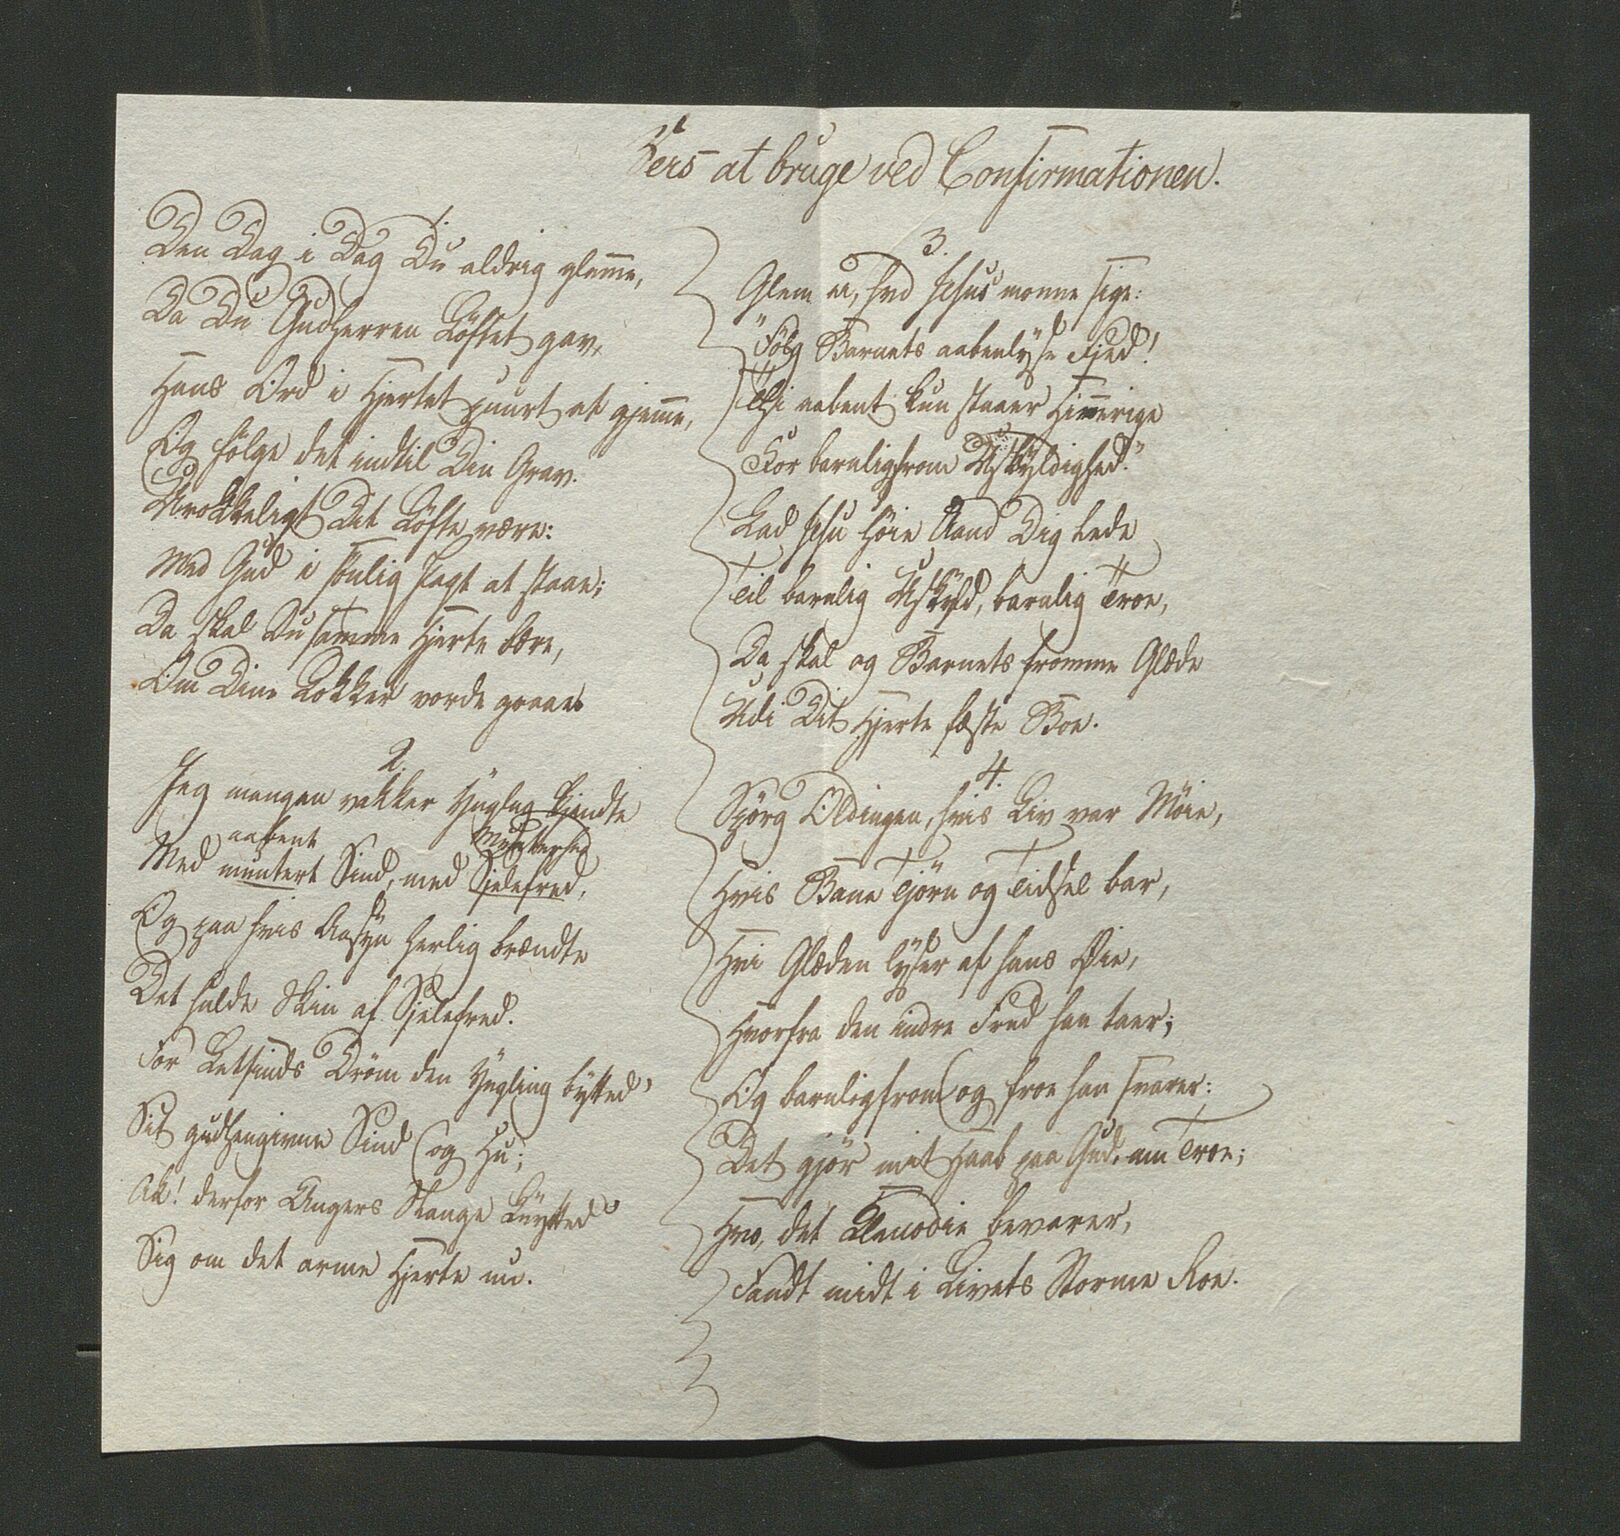 Vers at bruge ved Confirmationen.
1.
Den Dag i Dag Du aldrig glemme,
Da Du Gudherren Löftet gav,
Hans Ord i Hjertet puurt at gjemme,
Og følge det indtil Din Grav.
Urokkeligt Dit Löfte være:
Med Gud i sönlig Pagt at staae;
Da skal Du samme Hjerte bære,
Om Dine Lokker vorde graae.
2.
Jeg mangen vakker Yngling kjendte
aabent Munterhed
Med muntert Sind, med Sjelefred,
Og paa hvis Aasyn herlig brændte
Det hulde Skin af Sjelefred.
For Letsinds Dröm den Yngling bytted'
Sit gudhengivne Sind og Hu;
Ak! derfor Angers Slange knytted'
Sig om det arme Hjerte nu.
3.
Glem ei, hvd Jesus monne sige:
"Fölg Barnets aabenlyse Fjed!
Thi aabent kun staaer Himmerige
For barnligfrom Uskyldighed."
Lad Jesu höie Aand Dig lede
Til barnlig Uskyld, barnlig Troe,
Da skal og Barnets fromme Glæde
Udi Dit Hjerte fæste Boe.
4.
Spörg Oldingen, hvis Liv var Möie,
Hvis Bane Tjörn og Tidsel bar,
Hvi Glæden lyser af hans Øie,
Hvorfra den indre Fred han taer;
Og barnligfrom og froe han svarer:
Det gjör mit Haab paa Gud, min Troe;
Hvo, det Klenodie bevarer,
Fandt midt i Livets Storme Roe.